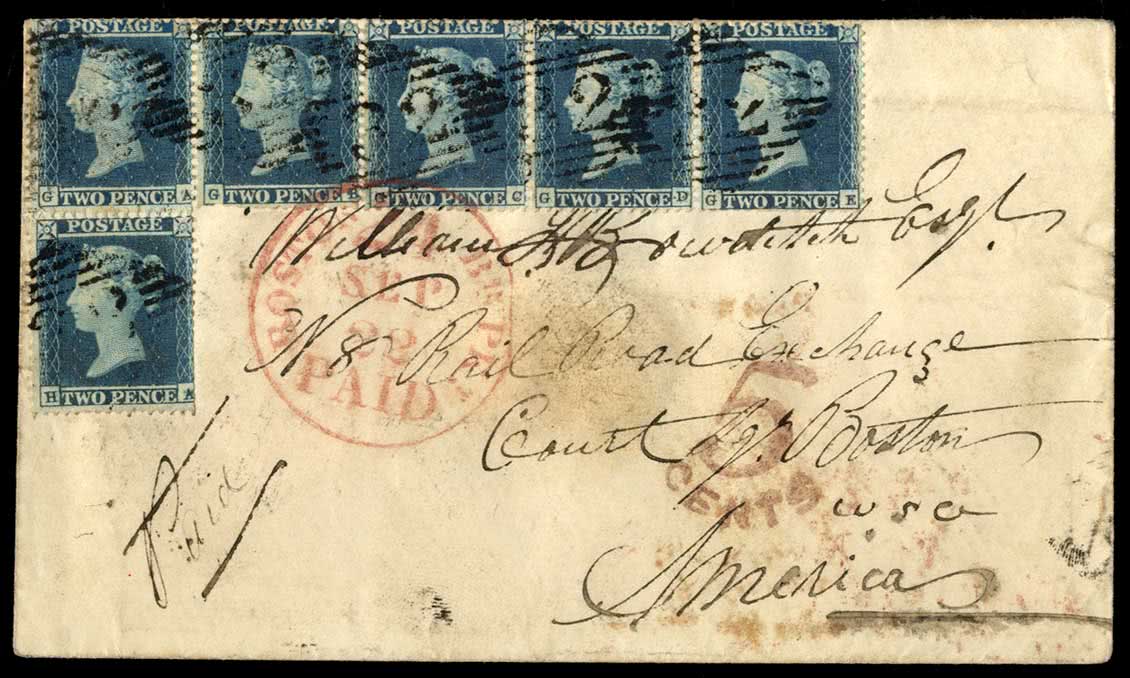 POSTAGE POSTAGE POSTAGE POSTAGE POSTAGE
G TWO PENCE A G TWO PENCE B G TWO PENCE C G TWO PENCE D G TWO PENCE E
POSTAGE
H TWO PENCE A
BOSTON BR. PKT
SEP
22
PAID
William Bowditch Esqr.
N 8 Rail Road Exchange
Court Sqr. Boston
U S A
America
5
CENTS
Paid